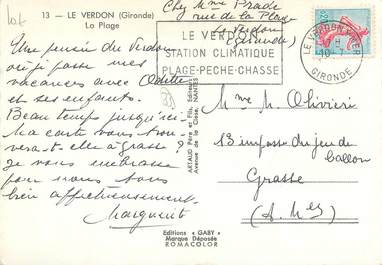 lot
13 — LE VERDON (Gironde)
La Plage
Chez Mme Prade
rue de la Plage
Verdon
(Gironde)
LE VERDON
STATION CLIMATIQUE
PLAGE-PECHE-CHASSE
LE VERDON S/MER
GIRONDE
Une pensée du Verdon
où je passe mes
vacances avec Odette
et ses enfants.
Beau temps jusqu'ici.
Ma carte vous trou-
verait elle à Grasse ?
je vous embrasse
pour vous tous
bien affectueusement.
Marguerit
33
ARTAUD Père et Fils, Éditeurs
Avenue de la Close, NANTES
Mme M. Olivieri
13 impasse du jeu de
ballon
Grasse
(A. Mes)
Editions "GABY"
Marque Déposée
ROMACOLOR